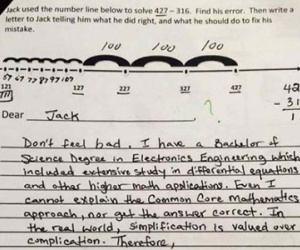 Jack used the number line below to solve 427 – 316. Find his error. Then write a
letter to Jack telling him what he did right, and what he should do to fix his
mistake.
100 100 100
57 67 77 87 97 107
121 127 227 327 427
111
?
42
- 31
1
Dear Jack,
Don't feel bad. I have a Bachelor of
Science Degree in Electronics Engineering which
included extensive study in differential equations
and other higher math applications. Even I
cannot explain the Common Core Mathematics
approach, nor get the answer correct. In
the real world, simplification is valued over
complication. Therefore,